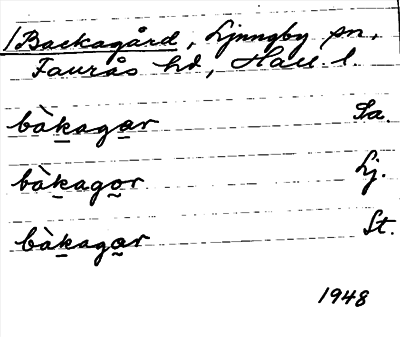 /Backagård, Ljungby sn,
Faurås hd, Hall. l.
bàkagar Sa.
bàkagor Lj.
bàkagar St.
1948